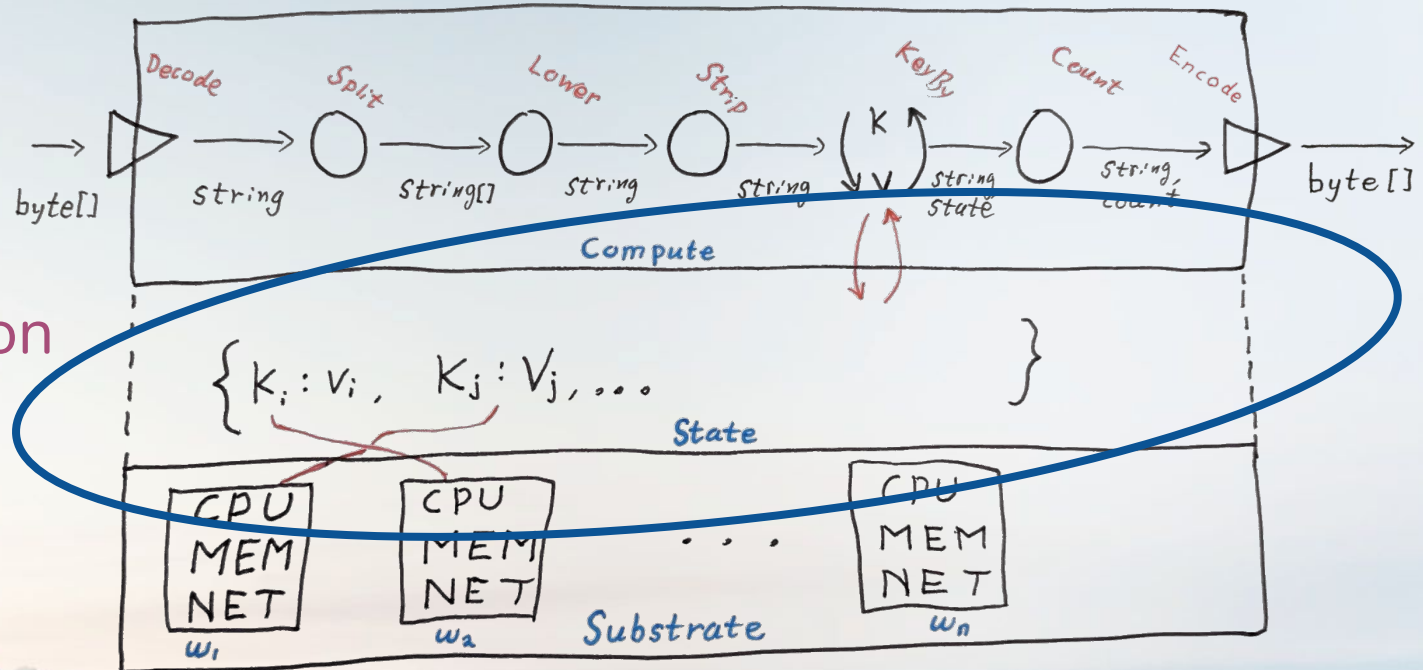 Decode Split Lower Strip KeyBy Count Encode
K
V
byte[] string string[] string string string state string, count byte[]
Compute
on
{ Ki : Vi , Kj : Vj , ... }
State
CPU CPU CPU
MEM MEM ... MEM
NET NET NET
w1 w2 Substrate wn